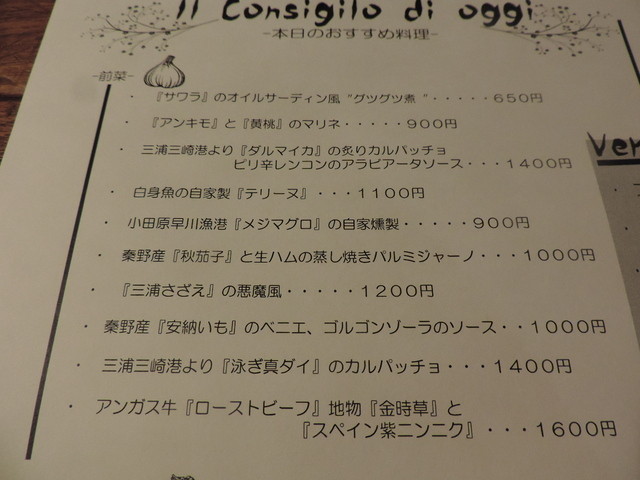 Il Consiglio di oggi
-本日のおすすめ料理-
-前菜-
・『サワラ』のオイルサーディン風 "グツグツ煮 "・・・・・６５０円
・『アンキモ』と『黄桃』のマリネ・・・・・９００円
・三浦三崎港より『ダルマイカ』の炙りカルパッチョ
ピリ辛レンコンのアラビアータソース・・・１４００円
・白身魚の自家製『テリーヌ』・・・１１００円
・小田原早川漁港『メジマグロ』の自家燻製・・・・・９００円
・秦野産『秋茄子』と生ハムの蒸し焼きパルミジャーノ・・・１０００円
・『三浦さざえ』の悪魔風・・・・・１２００円
・秦野産『安納いも』のベニエ、ゴルゴンゾーラのソース・・１０００円
・三浦三崎港より『泳ぎ真ダイ』のカルパッチョ・・・１４００円
・アンガス牛『ローストビーフ』地物『金時草』と
『スペイン紫ニンニク』・・・１６００円
Ver